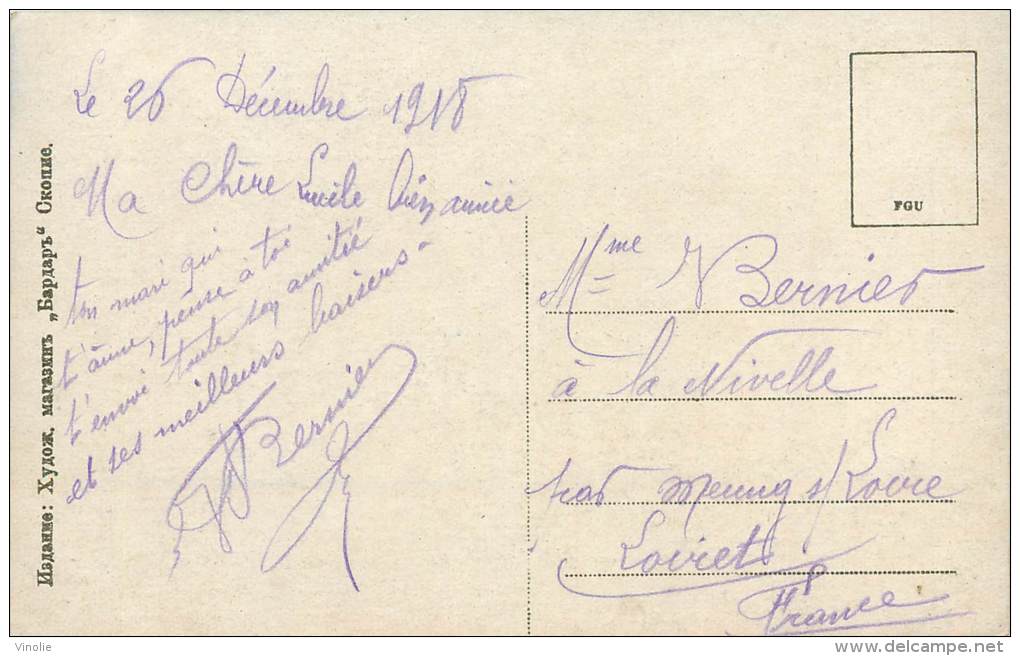 Le 26 Décembre 1918
Ma Chère Lucile bien aimée
ton mari qui
t'aime, pense à toi
t'envoi toute son amitié
et ses meilleurs baisers
Bernier
FGU
Mme Bernier
à la Nivelle
par Meung s/ Loire
Loiret
France
Издание: Худож. магазинъ „Бардаръ“ Скопие.
Vinolie
delcampe.net